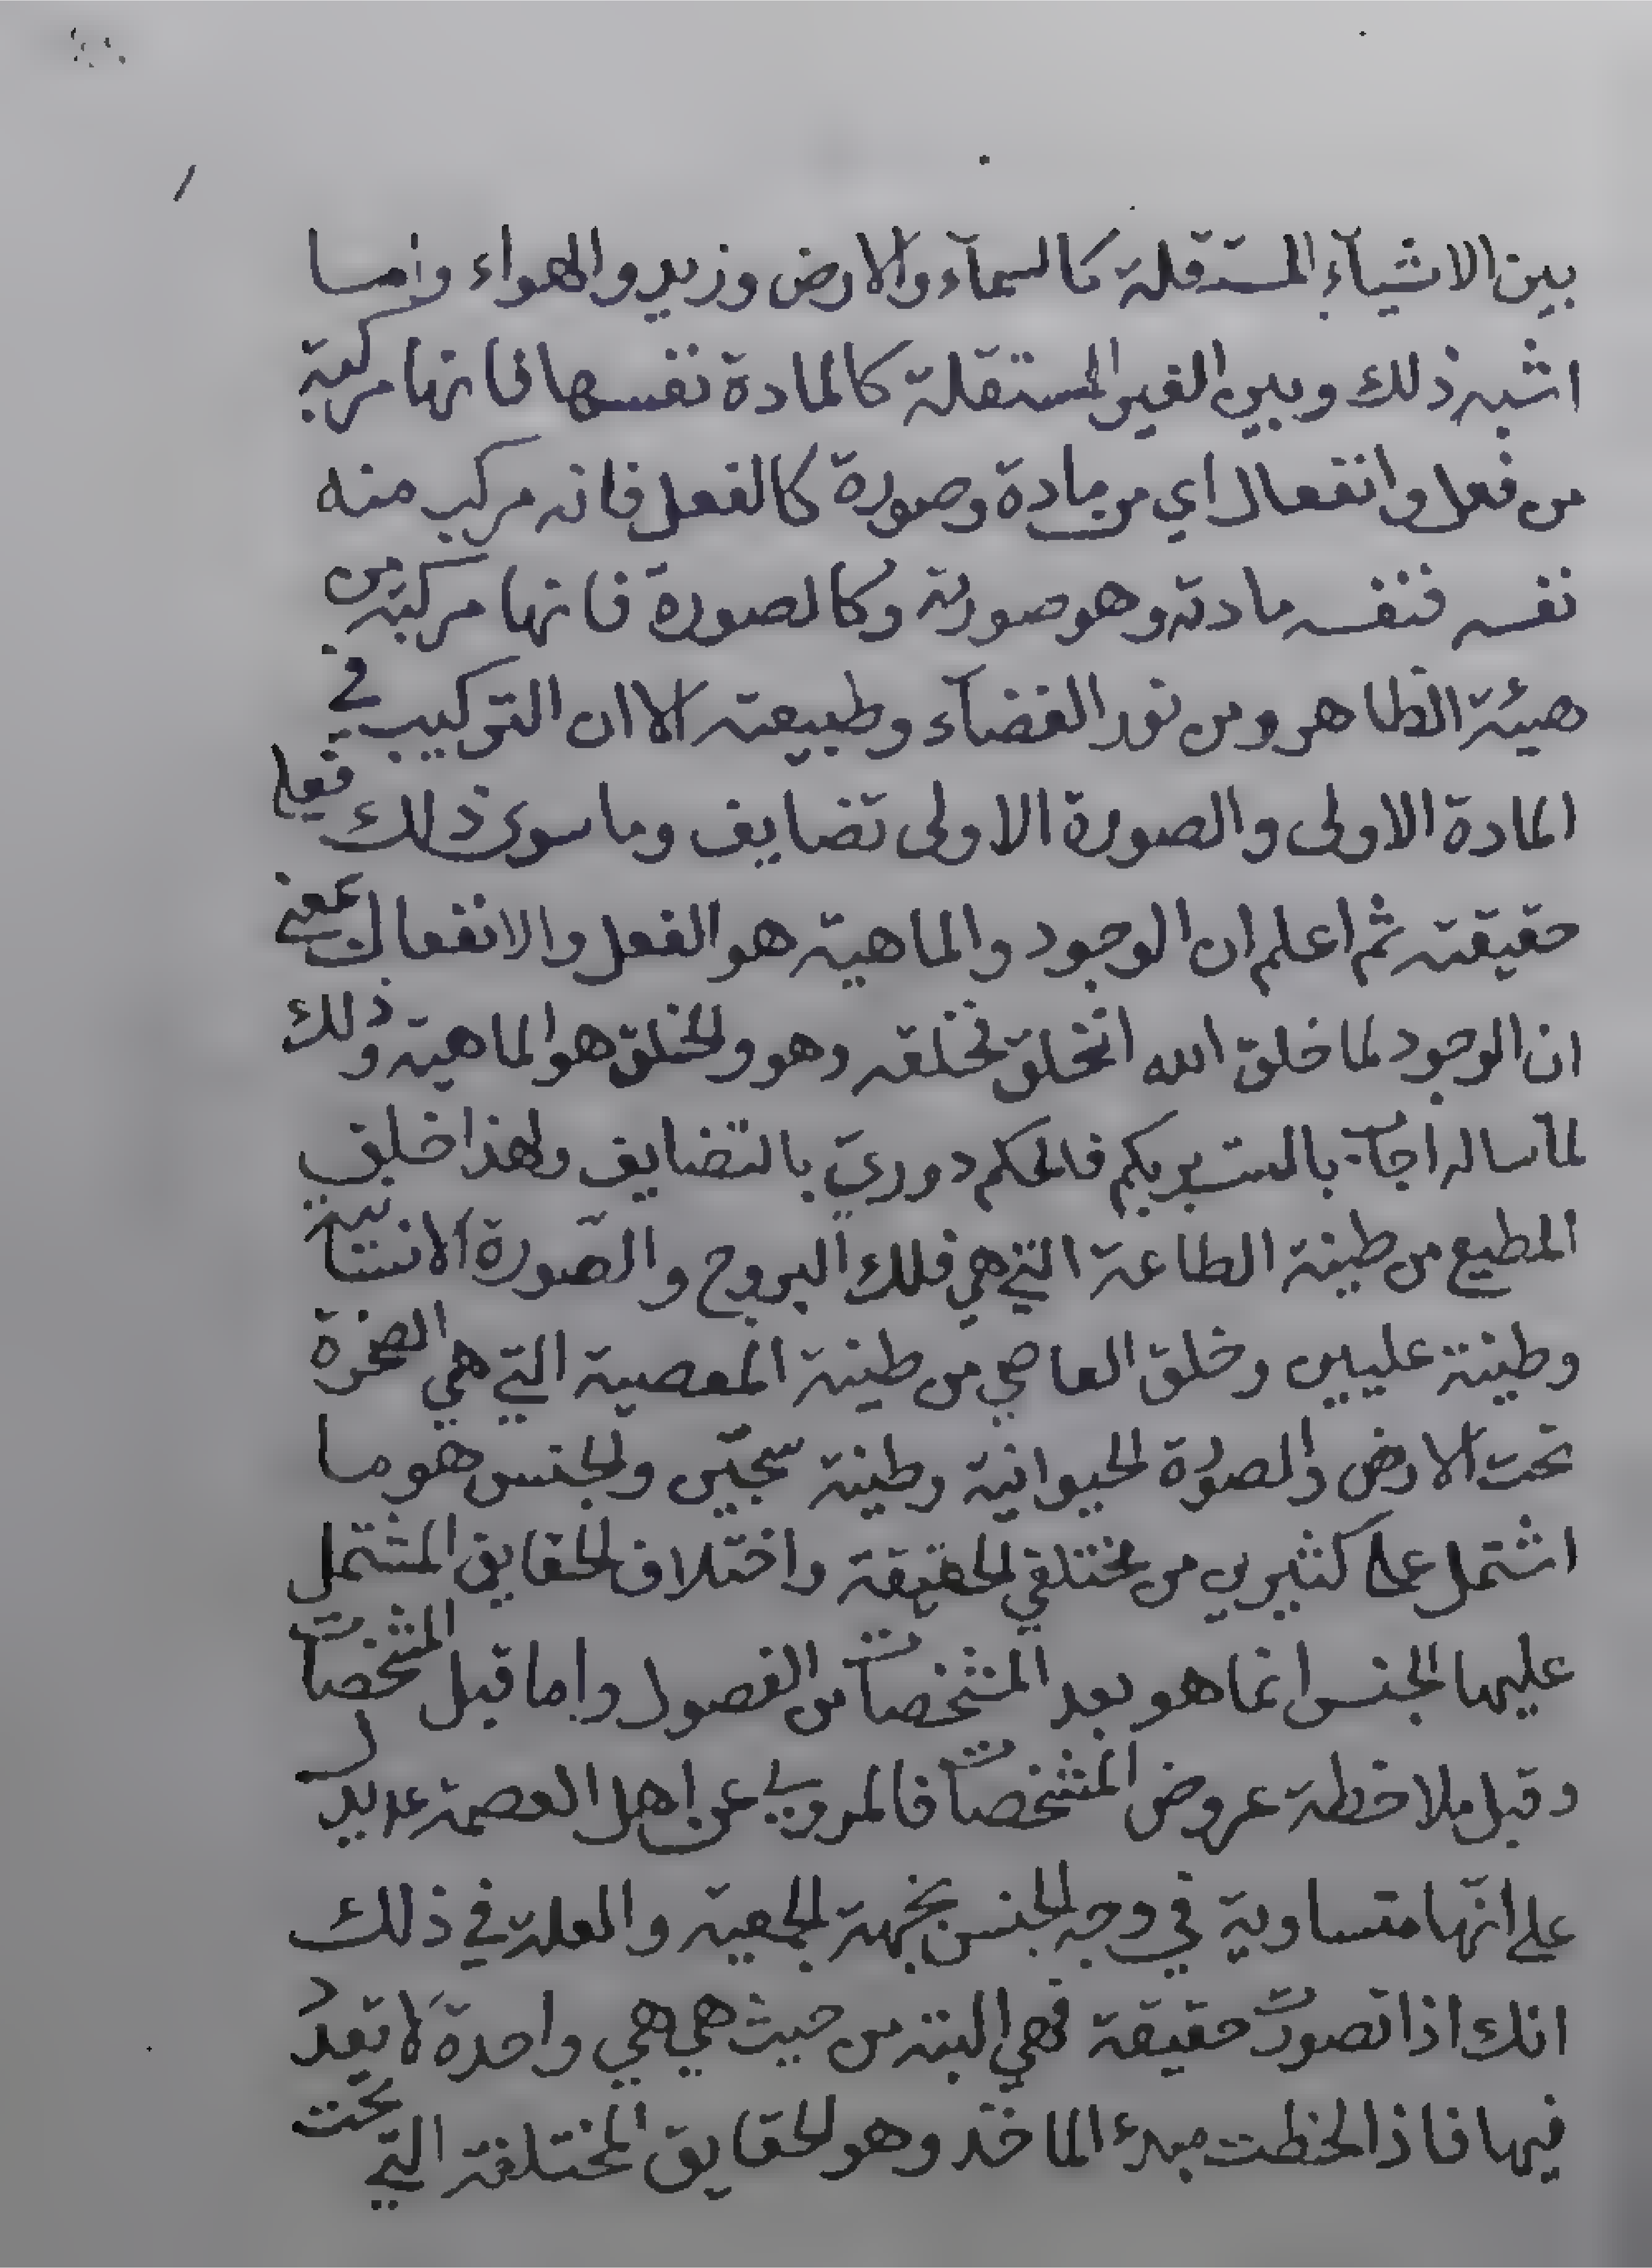 بين الاشيآء المستقلة كالسمآء والارض وزيد والهواء وما
اشبه ذلك وبين الغير المستقلة كالمادة نفسها فانها مركبة
من فعل وانفعال اي من مادة وصورة كالفعل فانه مركب منه
نفسه فنفسه مادته وهو صورته وكالصورة فانها مركبة من
هيئة الظاهر ومن نور الفضآء وطبيعته الا ان التركيب في
المادة الاولى والصورة الاولى تضايف وما سوى ذلك فعلى
حقيقته ثم اعلم ان الوجود والماهية هو الفعل والانفعال بمعنى
ان الوجود لما خلق الله انخلق بخلقه وهو والخلق هو الماهية وذلك
لما ساله اجاب بالست بربكم فالحكم دوري بالتضايف ولهذا خلق
المطيع من طينة الطاعة التي هي فلك البروج والصورة الانسانية
وطينة عليين وخلق العاصي من طينة المعصية التي هي الصخرة
تحت الارض والصورة الحيوانية وطينة سجين والجنس هو ما
اشتمل على كثيرين من مختلفي الحقيقة واختلاف الحقايق المشتمل
عليها الجنس انما هو بعد المشخصات من الفصول واما قبل المشخصات
وقبل ملاحظة عروض المشخصات فالمروي عن اهل العصمة يدل
على انها متساوية في وجه الجنس بجهة الجمعية والعلة في ذلك
انك اذا تصورت حقيقة فهي البتة من حيث هي هي واحدة لا تعدد
فيها فاذا لحظت مبدء الماخذ وهو الحقايق المختلفة التي تحت